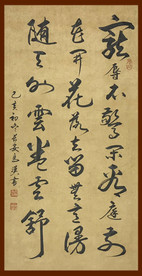 寵辱不驚閒看庭前
花開花落去留無意漫
随天外雲卷雲舒
己亥初 書